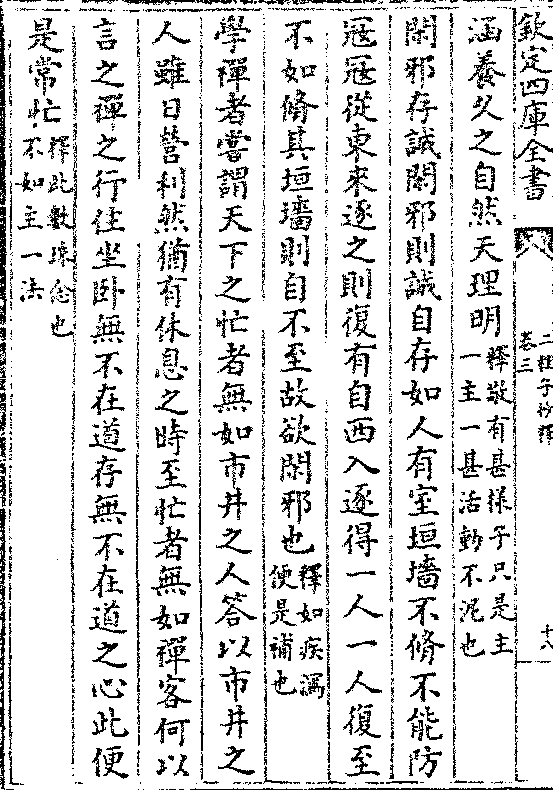 欽定四庫全書
二程子抄釋
卷三
十八
涵養久之自然天理明
釋敬有甚様子只是主
一主一甚活動不泥也
閑邪存誠閑邪則誠自存如人有室垣墻不脩不能防
冦冦從東來逐之則復有自西入逐得一人一人復至
不如脩其垣墻則自不至故欲閑邪也
釋如疾瀉
便是補也
學禪者嘗謂天下之忙者無如市井之人答以市井之
人雖日營利然猶有休息之時至忙者無如禪客何以
言之禪之行住坐卧無不在道存無不在道之心此便
是常忙
釋此數珠念也
不如主一法